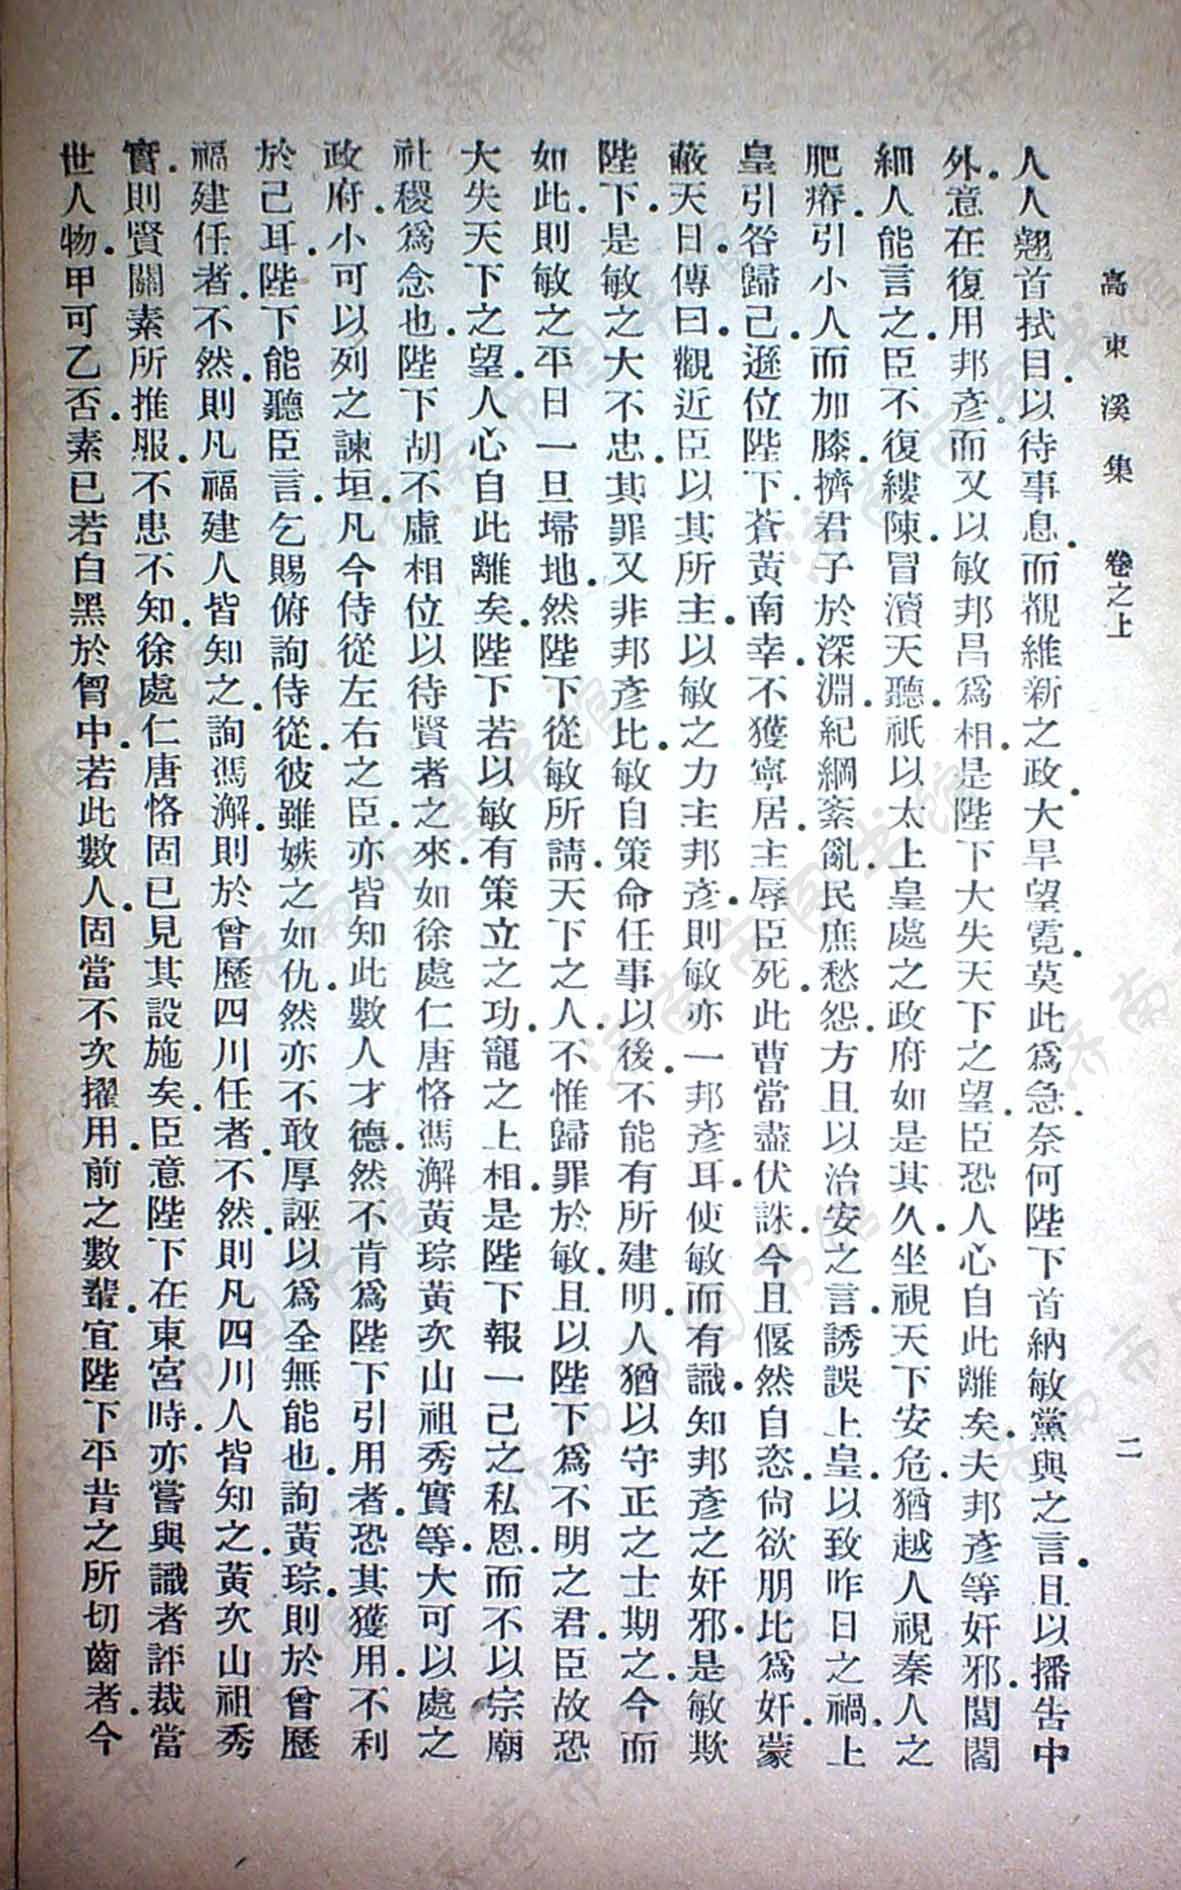 高東溪集 卷之上 二
人人翹首拭目.以待事息.而覩維新之政.大旱望霓.莫此爲急.奈何陛下首納敏黨與之言.且以播告中
外.意在復用邦彥.而又以敏邦昌爲相.是陛下大失天下之望.臣恐人心自此離矣.夫邦彥等奸邪.閭閻
細人能言之.臣不復縷陳.冒瀆天聽.祇以太上皇處之政府如是其久.坐視天下安危.猶越人視秦人之
肥瘠.引小人而加膝.擠君子於深淵.紀綱紊亂.民庶愁怨.方且以治安之言.誘誤上皇.以致昨日之禍.上
皇引咎歸己.遜位陛下.蒼黃南幸.不獲寧居.主辱臣死.此曹當盡伏誅.今且偃然自恣.尙欲朋比爲奸.蒙
蔽天日.傳曰.觀近臣以其所主.以敏之力主邦彥.則敏亦一邦彥耳.使敏而有識.知邦彥之奸邪.是敏欺
陛下.是敏之大不忠.其罪又非邦彥比.敏自策命任事以後.不能有所建明.人猶以守正之士期之.今而
如此.則敏之平日一旦埽地.然陛下從敏所請.天下之人.不惟歸罪於敏.且以陛下爲不明之君.臣故恐
大失天下之望.人心自此離矣.陛下若以敏有策立之功.寵之上相.是陛下報一己之私恩.而不以宗廟
社稷爲念也.陛下胡不虛相位以待賢者之來.如徐處仁唐恪馮澥黃琮黃次山祖秀實等.大可以處之
政府.小可以列之諫垣.凡今侍從左右之臣.亦皆知此數人才德.然不肯爲陛下引用者.恐其獲用.不利
於己耳.陛下能聽臣言.乞賜俯詢侍從.彼雖嫉之如仇.然亦不敢厚誣以爲全無能也.詢黃琮.則於曾歷
福建任者.不然.則凡福建人皆知之.詢馮澥.則於曾歷四川任者.不然.則凡四川人皆知之.黃次山祖秀
實.則賢關素所推服.不患不知.徐處仁唐恪固已見其設施矣.臣意陛下在東宮時.亦嘗與識者評裁當
世人物.甲可乙否.素已若白黑於胷中.若此數人.固當不次擢用.前之數輩.宜陛下平昔之所切齒者.今